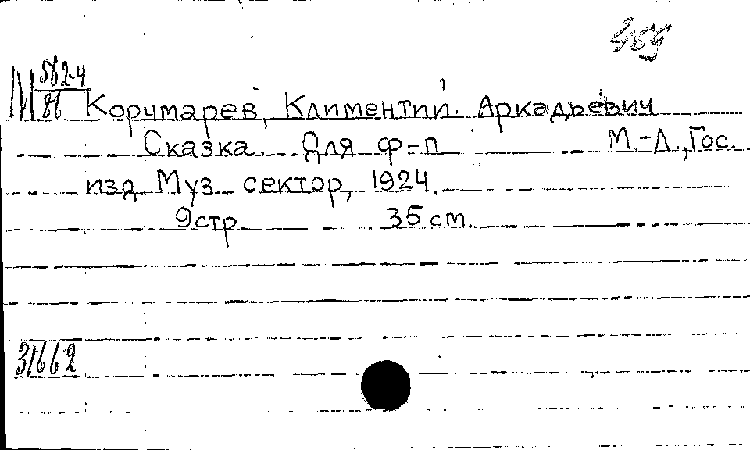 959
М 562-4
86
Корчмарев, Климентий Аркадьевич
Сказка. Для ф-п М.-Л., Гос.
изд Муз. сектор, 1924.
9 стр. 35 см.
31662